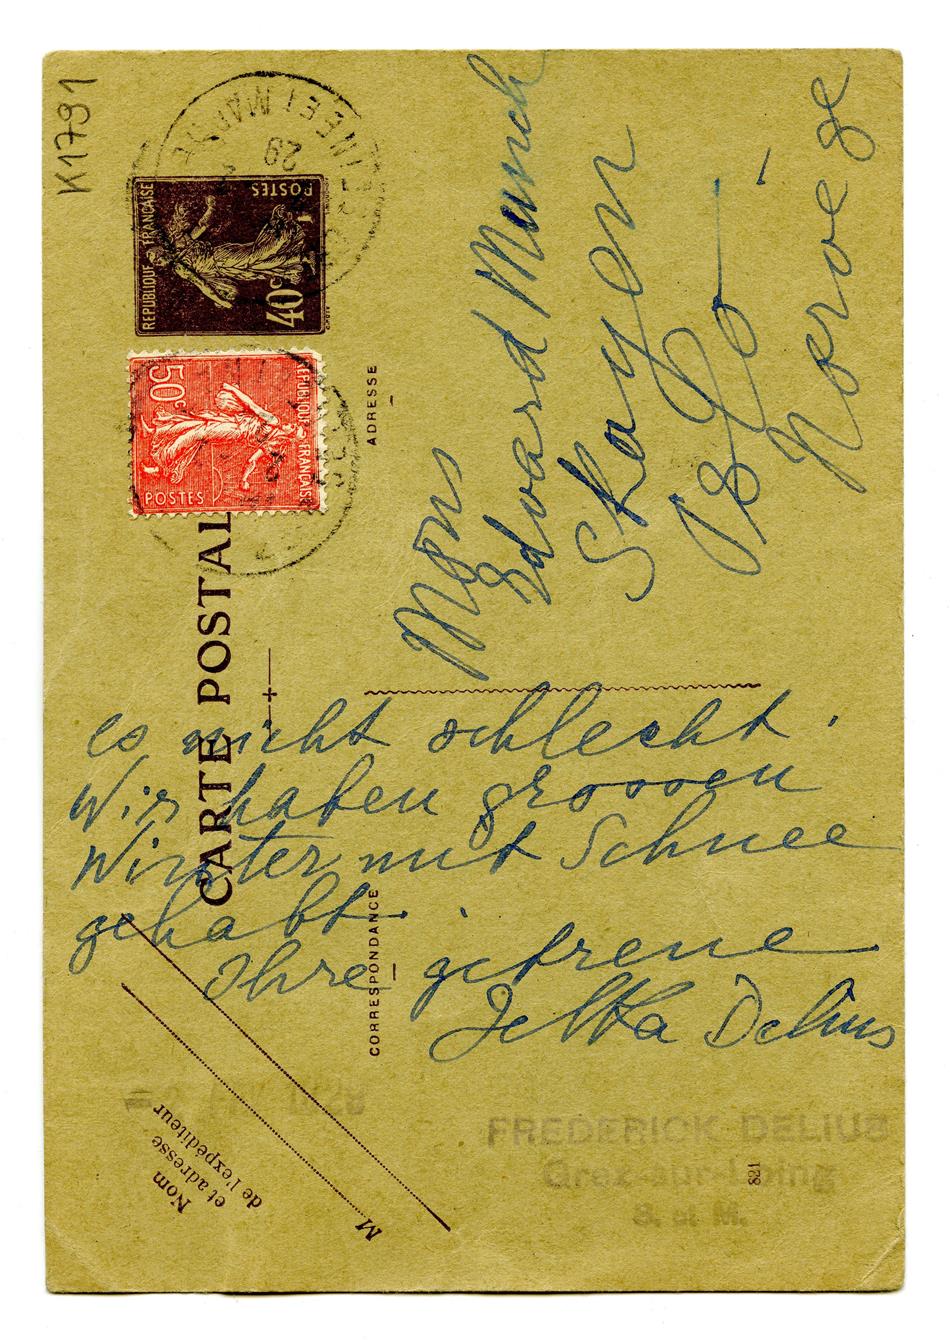 K1791
SEINE ET MARNE
29
REPUBLIQUE FRANÇAISE
POSTES
40c
REPUBLIQUE FRANÇAISE
POSTES
50c
CARTE POSTALE
ADRESSE
Mons
Edvard Munch
Skøyen
Oslo
Norvège
CORRESPONDANCE
es nicht schlecht.
Wir haben grossen
Winter mit Schnee
gehabt.
Ihre getreue
Jelka Delius
Nom
et adresse
de l'expéditeur
M
FREDERICK DELIUS
Grez-sur-Loing
S. et M.
821